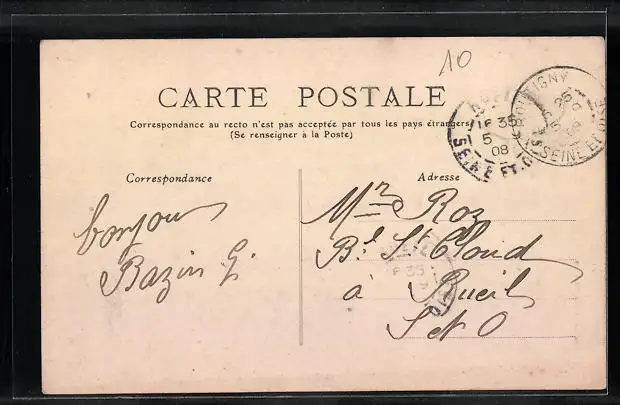 10
CARTE POSTALE
Correspondance au recto n'est pas acceptée par tous les pays étrangers
(Se renseigner à la Poste)
35
5
08
SEINE ET O
SEINE ET OISE
Correspondance
Adresse
bonjour
Bazin G.
Mme Roz
Bd St Cloud
à Rueil
S et O